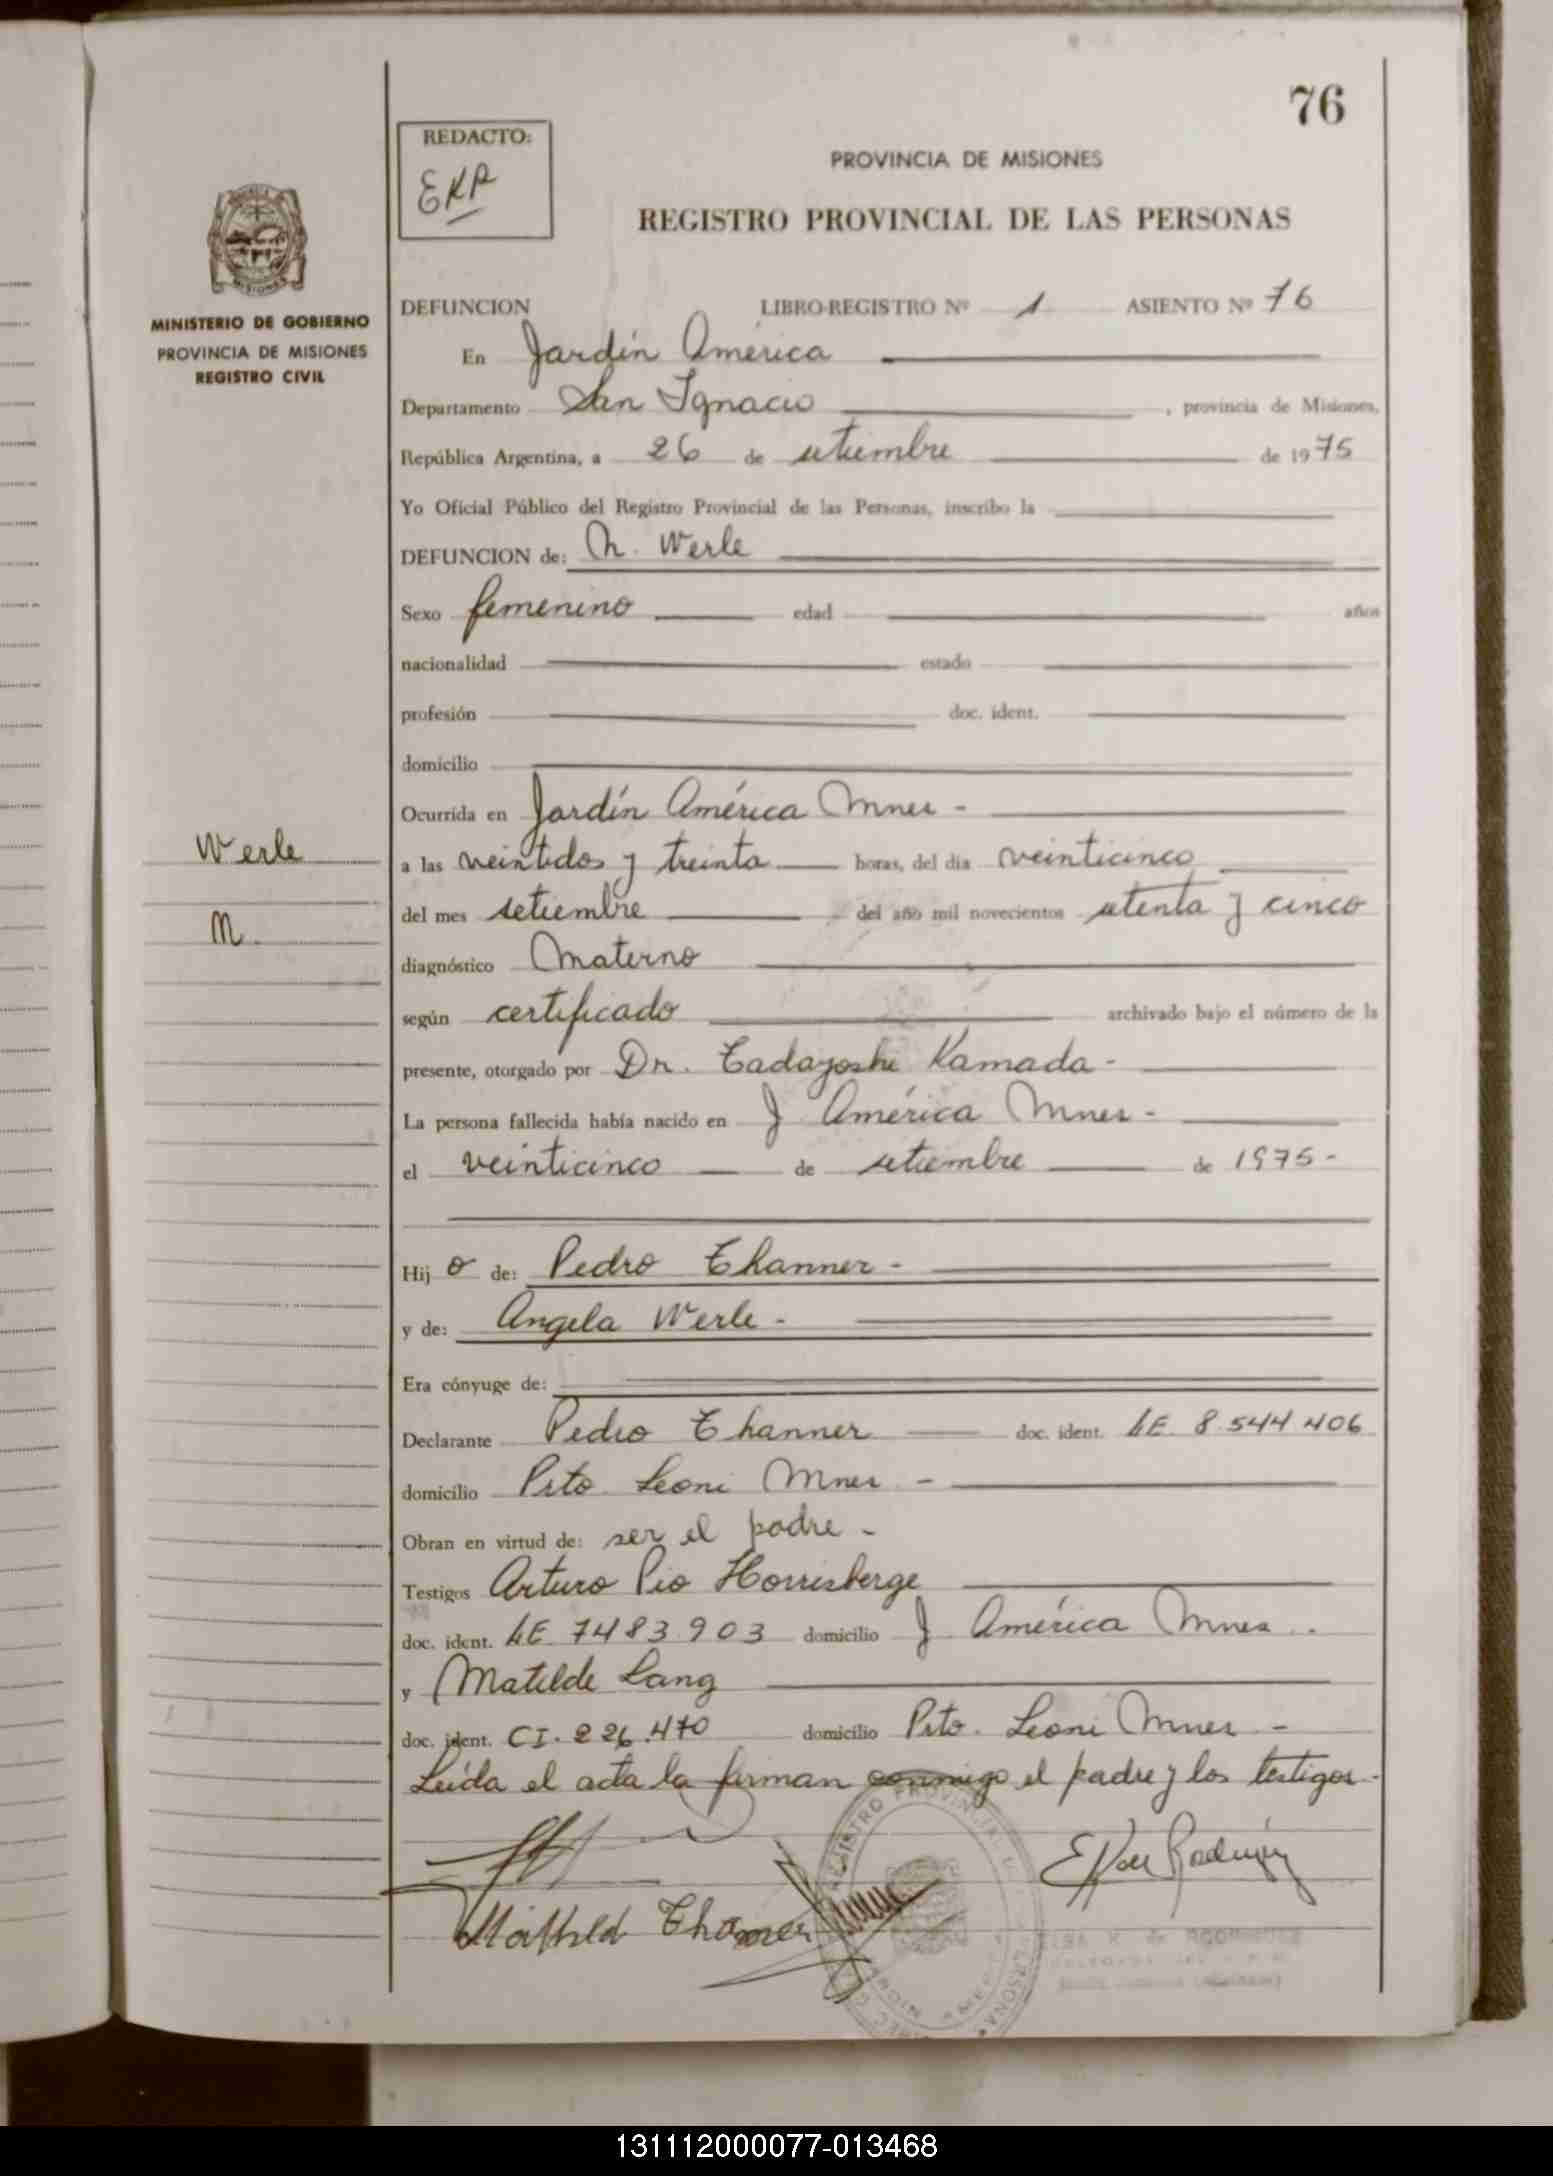 76
REDACTO:
EKR
PROVINCIA DE MISIONES
REGISTRO PROVINCIAL DE LAS PERSONAS
MINISTERIO DE GOBIERNO
PROVINCIA DE MISIONES
REGISTRO CIVIL
DEFUNCION LIBRO-REGISTRO Nº 1 ASIENTO Nº 76
En Jardín América
Departamento San Ignacio , provincia de Misiones,
República Argentina, a 26 de setiembre de 1975
Yo Oficial Público del Registro Provincial de las Personas, inscribo la
DEFUNCION de: N. Werle
Sexo femenino edad años
nacionalidad estado
profesión doc. ident.
domicilio
Ocurrida en Jardín América Mnes -
Werle
a las veintidos y treinta horas, del día veinticinco
del mes setiembre del año mil novecientos setenta y cinco
N.
diagnóstico Materno
según certificado archivado bajo el número de la
presente, otorgado por Dr. Tadayoshi Kamada -
La persona fallecida había nacido en J América Mnes -
el veinticinco de setiembre de 1975 -
Hij o de: Pedro Thanner -
y de: Angela Werle -
Era cónyuge de:
Declarante Pedro Thanner doc. ident. LE 8.544.406
domicilio Pto. Leoni Mnes -
Obran en virtud de: ser el padre -
Testigos Arturo Pio Horrisberge
doc. ident. LE 7483.903 domicilio J América Mnes .
y Matilde Lang
doc. ident. CI. 226.470 domicilio Pto. Leoni Mnes -
Leída el acta la firman conmigo el padre y los testigos -
Mathild Thanner
131112000077-013468